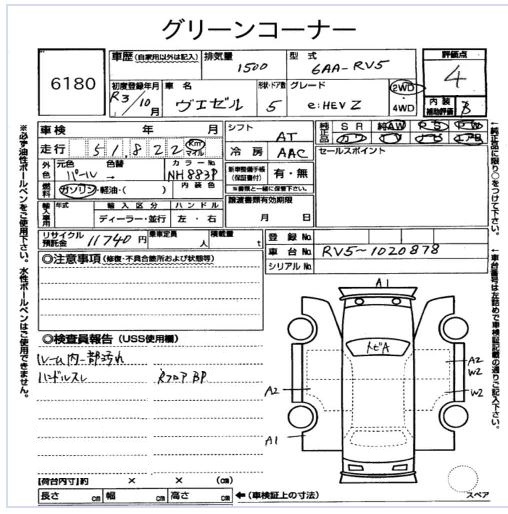 グリーンコーナー
6180
車歴 (自家用以外は記入)
排気量 1500
型式 6AA-RV5
評価点 4
初度登録年月 R3/10月
車名 ヴェゼル
形状・ドア数 5
グレード e:HEV Z
2WD
4WD
内装補助評価 B
車検 年 月
シフト AT
純正品 SR 純AW
走行 51,822 Km マイル
冷房 AAC
セールスポイント
外色 元色 パール 色替 →
カラーNo. NH883P
新車整備手帳(保証書付) 有・無
※書類と一緒に保管下さい。
燃料 ガソリン・軽油・( )
内装色
譲渡書類有効期限
月 日
輸入車用 年式 輸入区分 ディーラー・並行 ハンドル 左・右
リサイクル預託金 11740円
乗定員 人
積載量 t
登録No.
車台No. RV5-1020878
シリアルNo.
◎注意事項 (修復・不具合箇所および状態等)
◎検査員報告 (USS使用欄)
ルーム内一部汚れ
ハンドルスレ
RフロアBP
A1
トビA
A2
W2
A2
W2
A1
【荷台内寸】約 × × (cm)
長さ cm 幅 cm 高さ cm
←(車検証上の寸法)
スペア
※必ず油性ボールペンをご使用下さい。水性ボールペンはご使用できません。
←純正品に限り○をつけて下さい。
←車台番号は左詰めで車検証記載の通りご記入下さい。